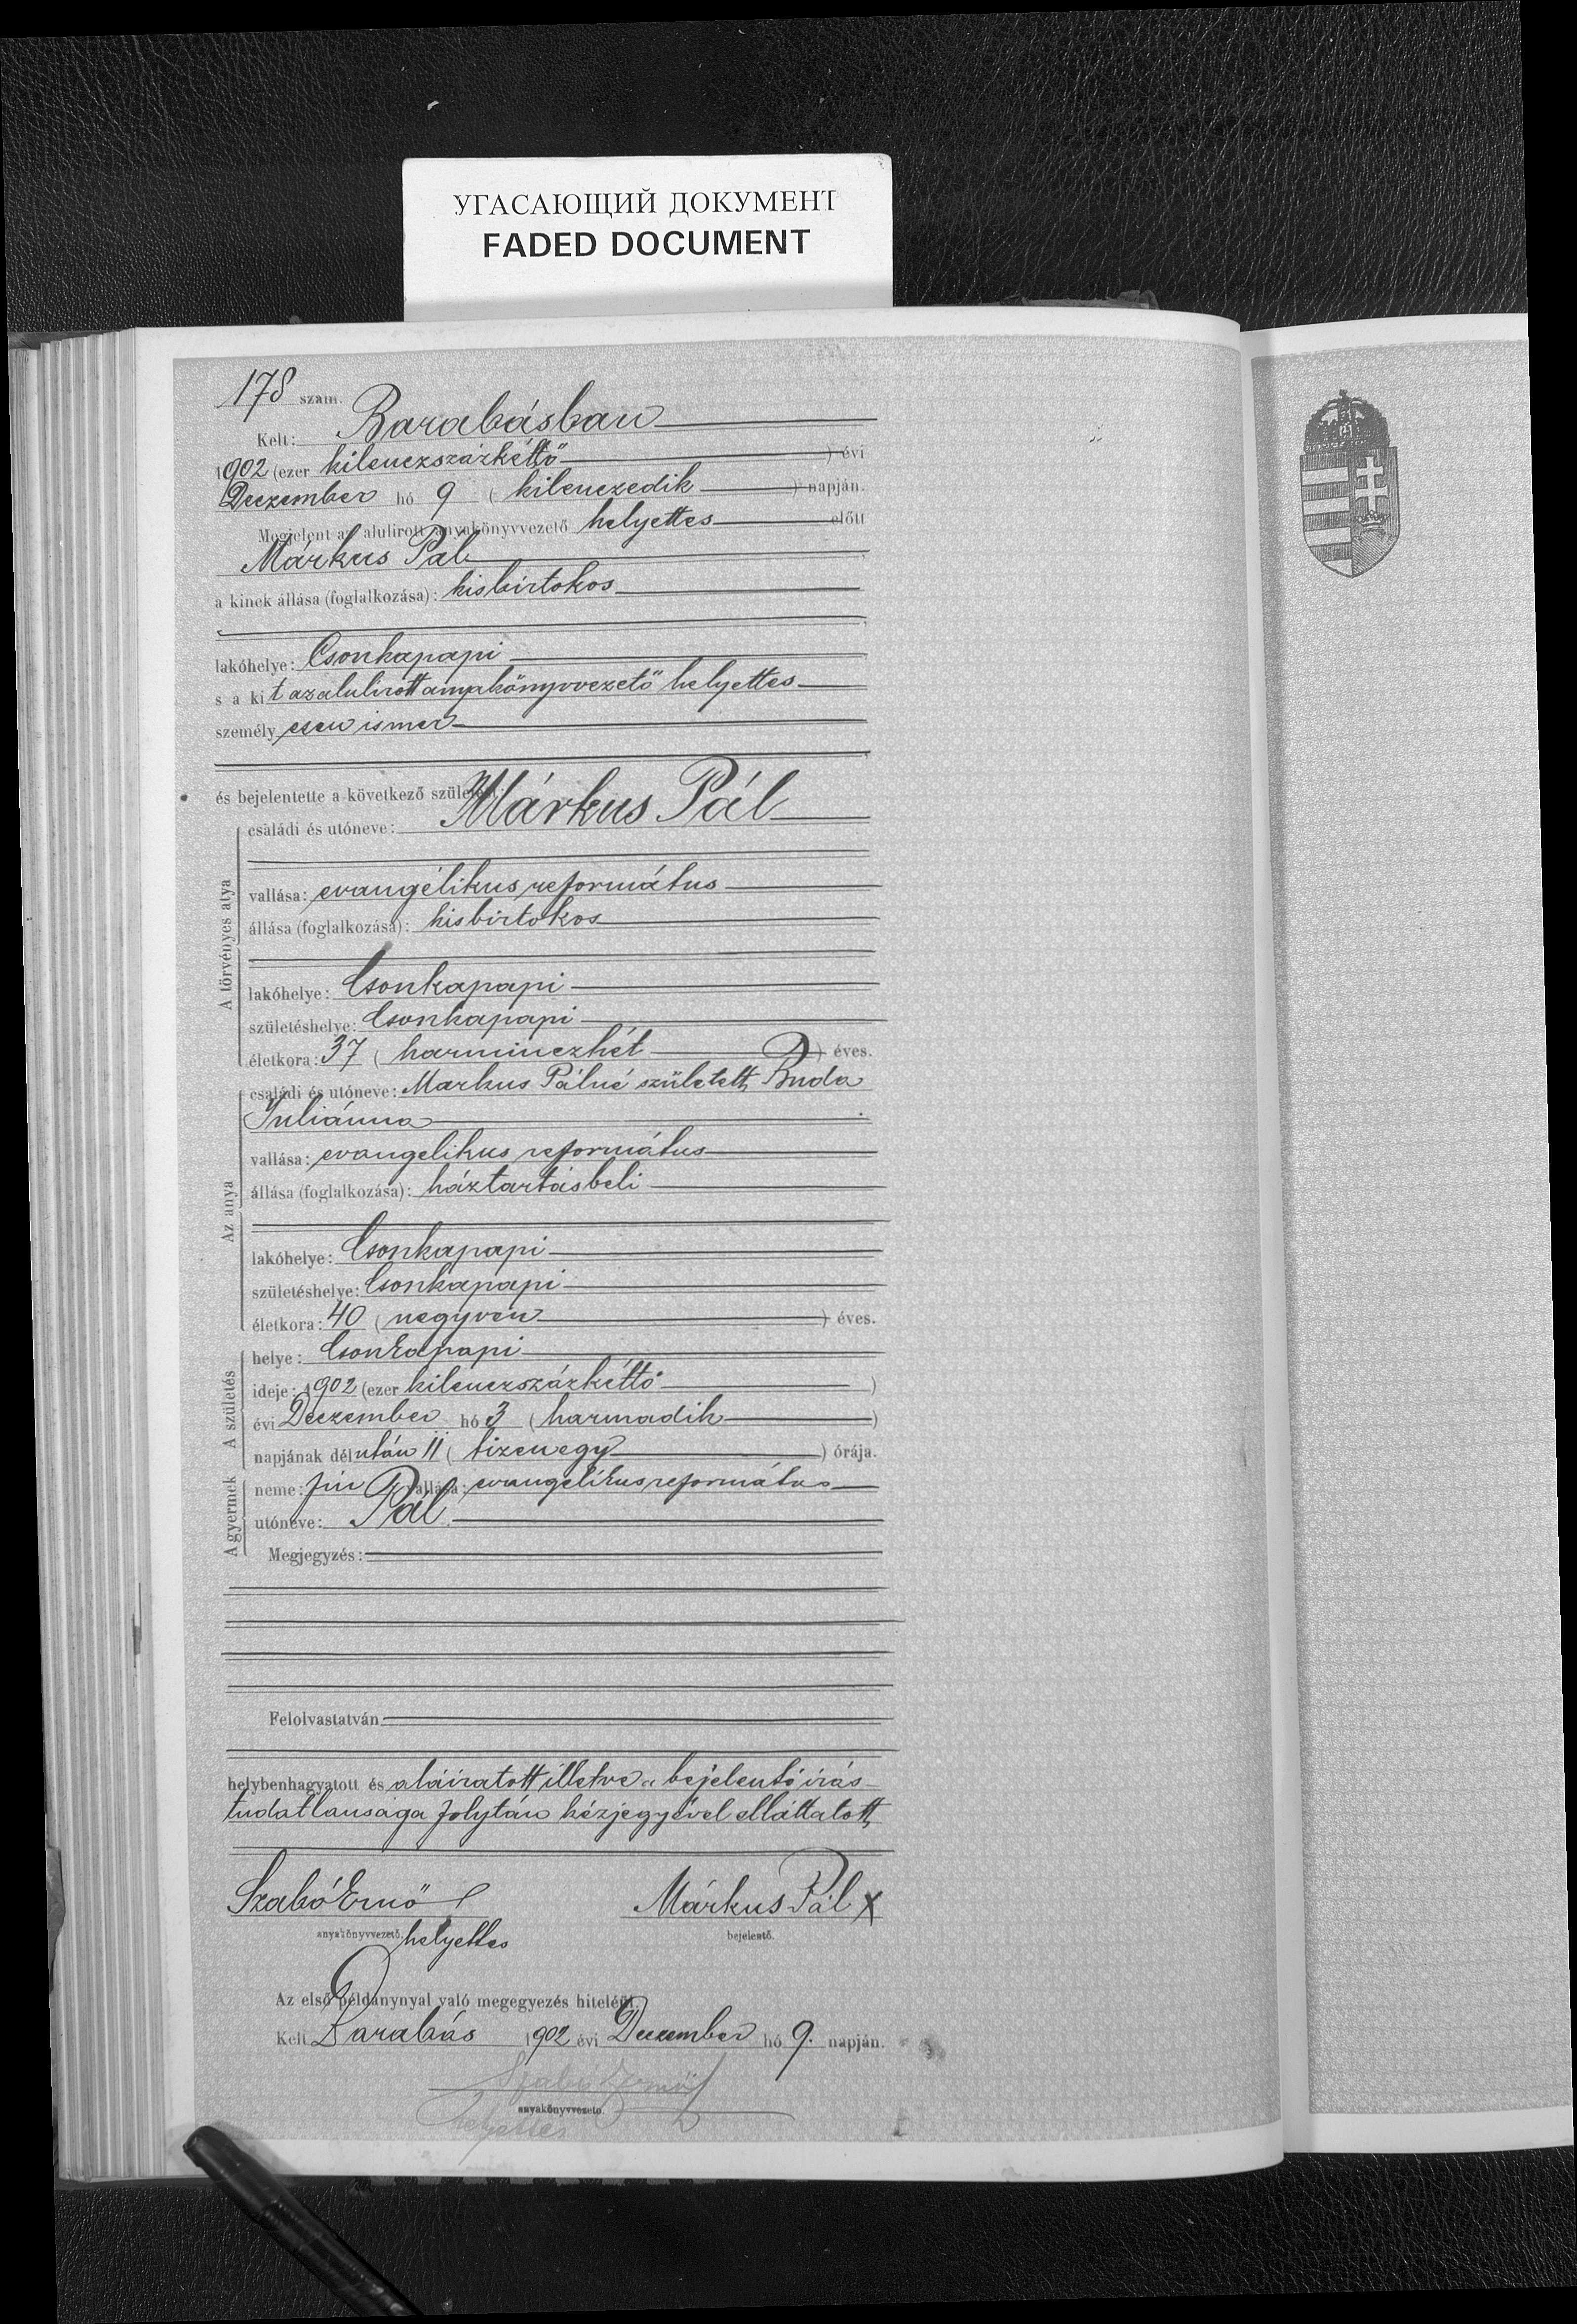 УГАСАЮЩИЙ ДОКУМЕНТ
FADED DOCUMENT
178 szám.
Kelt: Barabásban
1902 (ezer kilenczszázkéttő) évi
Deczember hó 9 (kilenczedik) napján.
Megjelent az alulirott anyakönyvvezető helyettes előtt
Márkus Pál
a kinek állása (foglalkozása): kisbirtokos
lakóhelye: Csonkapapi
s a kit az alulirott anyakönyvvezető helyettes
személyesen ismer
és bejelentette a következő születést:
A törvényes atya
családi és utóneve: Márkus Pál
vallása: evangélikus református
állása (foglalkozása): kisbirtokos
lakóhelye: Csonkapapi
születéshelye: Csonkapapi
életkora: 37 (harminczhét) éves.
Az anya
családi és utóneve: Markus Pálné született Buda
Juliánna
vallása: evangelikus református
állása (foglalkozása): háztartásbeli
lakóhelye: Csonkapapi
születéshelye: Csonkapapi
életkora: 40 (negyven) éves.
A születés
helye: Csonkapapi
ideje: 1902 (ezer kilenczszázkéttő)
évi Deczember hó 3 (harmadik)
napjának délután 11 (tizenegy) órája.
A gyermek
neme: fiu vallása: evangelikus református
utóneve: Pál
Megjegyzés:
Felolvastatván
helybenhagyatott és aláiratott illetve a bejelentő irás-
tudatlansága folytán kézjegyével elláttatott
Szabó Ernő Márkus Pál X
anyakönyvvezető. helyettes bejelentő.
Az első példánynyal való megegyezés hiteléül.
Kelt Barabás 1902 évi Deczember hó 9. napján.
Szabó Ernő
anyakönyvvezető.
helyettes